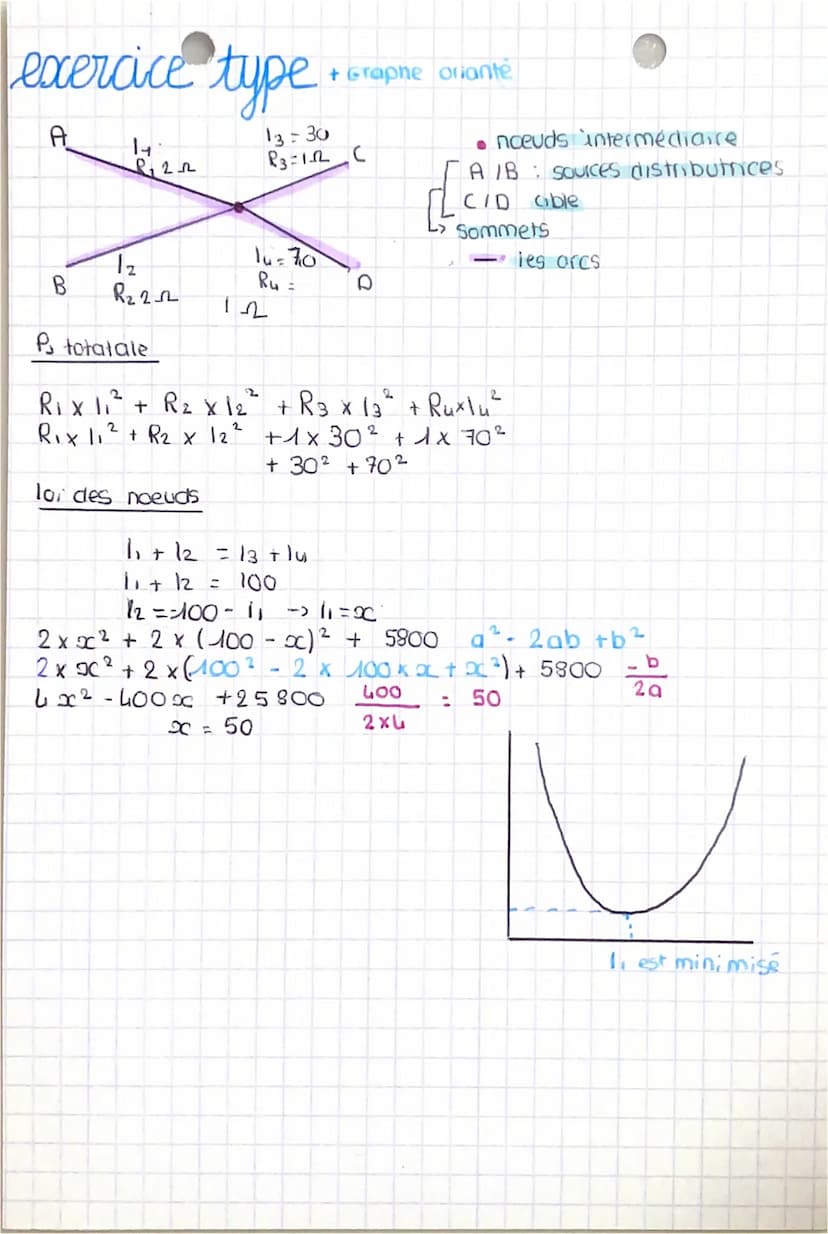 exercice type + Graphe orianté
A
I1
R1 2 Ω
I3 = 30
R3 = 1 Ω
C
B
I2
R2 2 Ω
I4 = 70
R4 =
1 Ω
D
• nœuds intermédiaire
A / B : sources distributrices
C / D cible
↳ sommets
— les arcs
PJ totalale
R1 x I1² + R2 x I2² + R3 x I3² + R4 x I4²
R1 x I1² + R2 x I2² + 1 x 30² + 1 x 70²
+ 30² + 70²
loi des noeuds
I1 + I2 = I3 + I4
I1 + I2 = 100
I2 = -100 - I1 -> I1 = x
2 x x² + 2 x (100 - x)² + 5800 a² - 2ab + b²
2 x x² + 2 x (100² - 2 x 100 x x + x²) + 5800 -b/2a
4x² - 400x + 25800 400/2x4 = 50
x = 50
I1 est minimisé